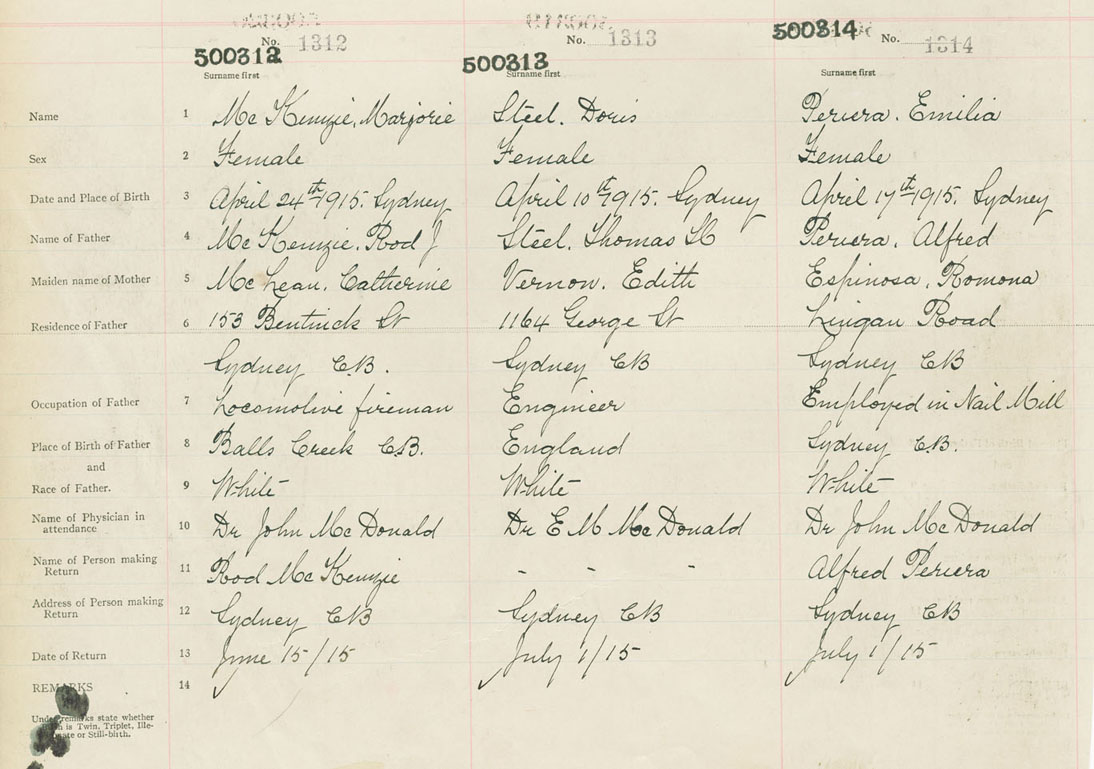 No. 1312 No. 1313 No. 1314
500312 500313 500314
Surname first Surname first Surname first
Name 1 Mc Kenzie, Marjorie Steel. Doris Periera. Emilia
Sex 2 Female Female Female
Date and Place of Birth 3 April 24th 1915. Sydney April 10th 1915. Sydney April 17th 1915. Sydney
Name of Father 4 Mc Kenzie. Rod J Steel. Thomas Periera. Alfred
Maiden name of Mother 5 Mc Lean. Catherine Vernon. Edith Espinosa. Romona
Residence of Father 6 153 Bentinck St 1164 George St Lingan Road
Sydney C.B. Sydney CB Sydney CB
Occupation of Father 7 Locomotive fireman Engineer Employed in Nail Mill
Place of Birth of Father 8 Balls Creek C.B. England Sydney C.B.
and
Race of Father. 9 White White White
Name of Physician in
attendance 10 Dr John McDonald Dr E M McDonald Dr John McDonald
Name of Person making
Return 11 Rod McKenzie - - - Alfred Periera
Address of Person making
Return 12 Sydney CB Sydney CB Sydney CB
Date of Return 13 June 15/15 July 1/15 July 1/15
REMARKS 14
Under remarks state whether
is Twin, Triplet, Ille-
or Still-birth.